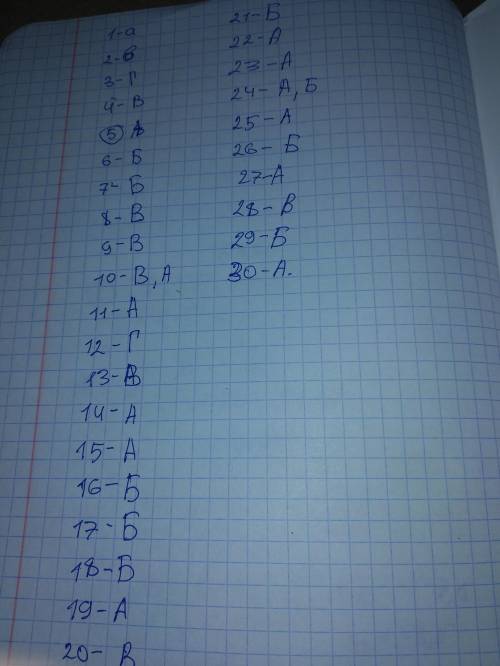 1-а
2-в
3-Г
4-В
5 А
6-Б
7-Б
8-В
9-В
10-В, А
11-А
12-Г
13-В
14-А
15-А
16-Б
17-Б
18-Б
19-А
20-В
21-Б
22-А
23-А
24-А, Б
25-А
26-Б
27-А
28-В
29-Б
30-А.